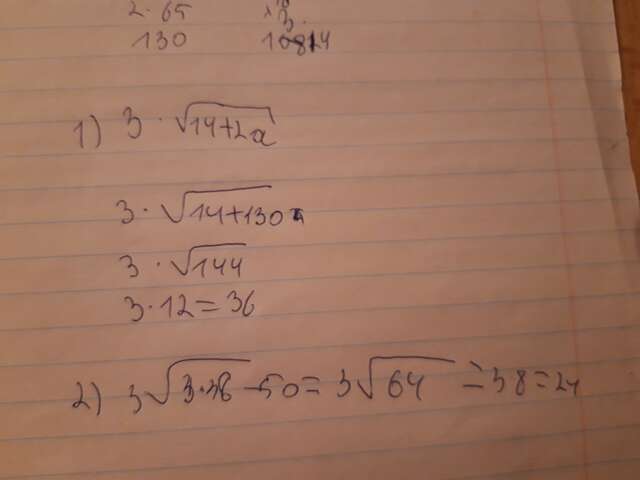 2·65 ×
3.
130
1) 3·√14+2a
3·√14+130
3·√144
3·12=36
2) 3√3·38-50=3√64=38=24